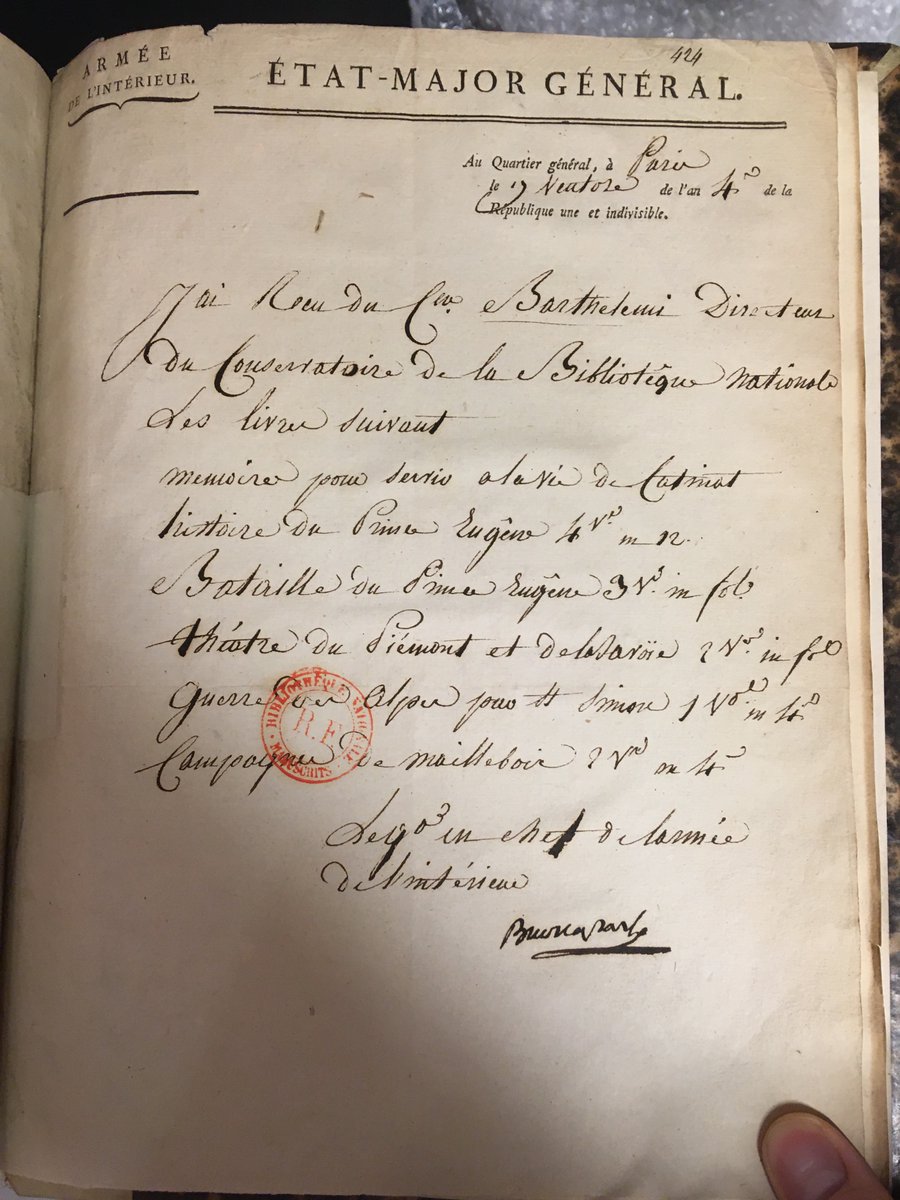 424
ARMÉE
DE L'INTÉRIEUR.
ÉTAT-MAJOR GÉNÉRAL.
Au Quartier général, à Paris
le 17 Ventose de l'an 4e de la
République une et indivisible.
J'ai Recu du Cen. Barthelemi Directeur
du Conservatoire de la Bibliotêque nationale
Les livres suivant
memoires pour servir a la vie de Catinat
histoire du Prince Eugêne 4 Ves in 12.
Bataille du Prince Eugêne 3 Vs. in fol.
théatre du Piémont et de la Savöie 2 Vos. in fol
Guerre des Alpes par St Simon 1 Vol. in 4o
Campagnes de maillebois 2 Ves in 4o
Le gal en chef de l'armée
de l'intérieur
Buonaparte
BIBLIOTHÈQUE NATIONALE
R.F.
MANUSCRITS